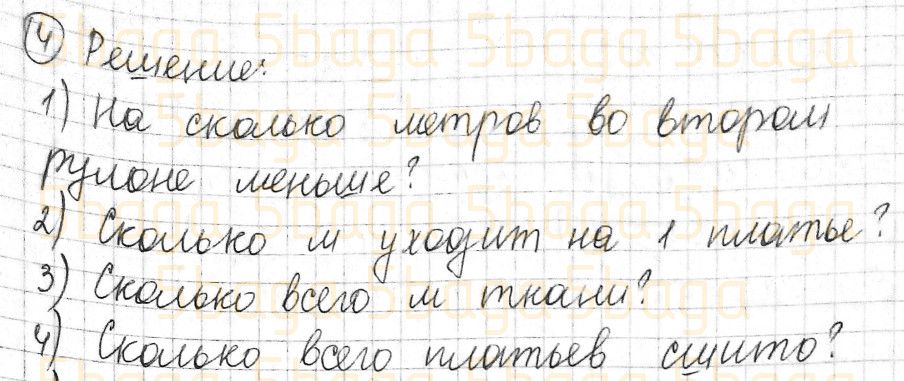 4 Решение:
1) На сколько метров во втором
рулоне меньше?
2) Сколько м уходит на 1 платье?
3) Сколько всего м ткани?
4) Сколько всего платьев сшито?